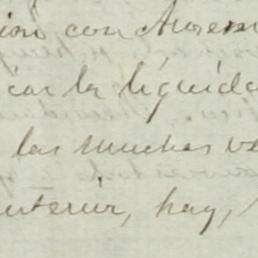 ion con Aurem
icar la liquida
las muchas ve
anterior, hay,